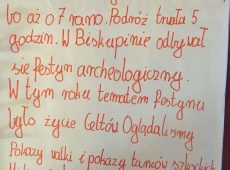 bo aż o 7 rano. Podróż trwała 5
godzin. W Biskupinie odbywał
się festyn archeologiczny.
W tym roku tematem festynu
było życie Celtów Oglądaliśmy
Pokazy walki i pokazy tańców szkockich